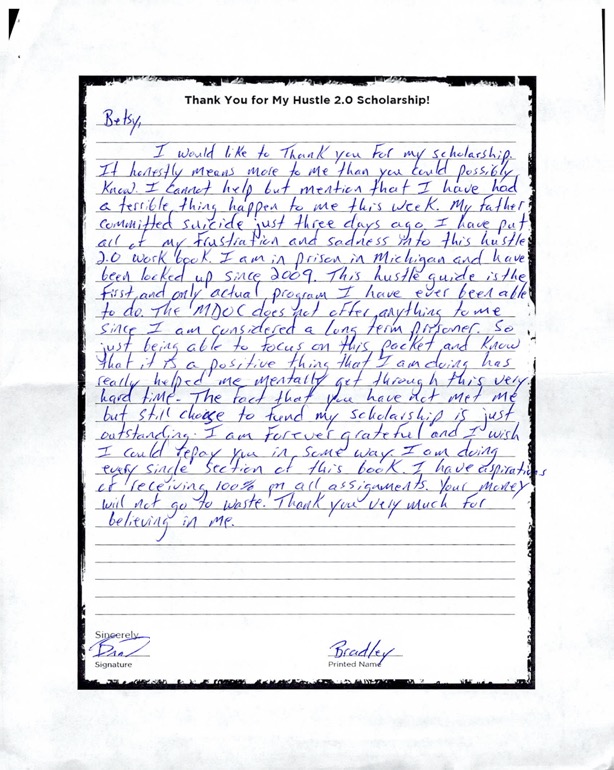 Thank You for My Hustle 2.0 Scholarship!
Betsy,
I would like to Thank you For my scholarship.
It honestly means more to me than you could possibly
know. I cannot help but mention that I have had
a terrible thing happen to me this week. My father
committed suicide just three days ago. I have put
all of my frustration and sadness into this hustle
2.0 work book. I am in prison in Michigan and have
been locked up since 2009. This hustle guide is the
first and only actual program I have ever been able
to do. The MDOC does not offer anything to me
since I am considered a long term prisoner. So
just being able to focus on this packet and know
that it is a positive thing that I am doing has
really helped me mentally get through this very
hard time. The fact that you have not met me
but still choose to fund my scholarship is just
outstanding. I am forever grateful and I wish
I could repay you in some way. I am doing
every single section of this book. I have aspirations
of receiving 100% on all assignments. Your money
will not go to waste. Thank you very much for
believing in me.
Sincerely,
Signature
Bradley
Printed Name